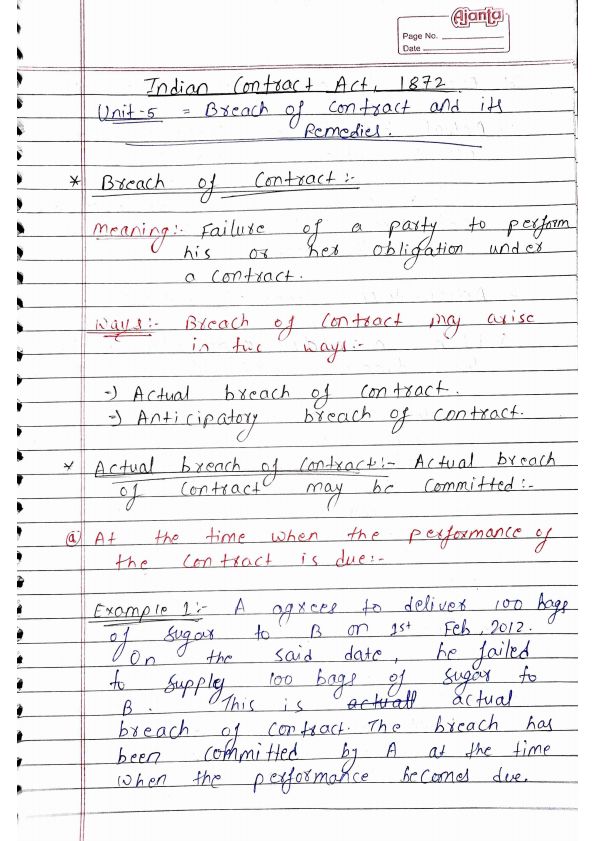 Ajanta
Page No.
Date
Indian Contract Act, 1872
Unit-5 = Breach of contract and its
Remedies.
* Breach of Contract:-
Meaning:- Failure of a party to perform
his or her obligation under
a contract.
Ways:- Breach of Contract may arise
in two ways:-
-) Actual breach of contract.
-) Anticipatory breach of contract.
* Actual breach of contract:- Actual breach
of contract may be committed:-
(a) At the time when the performance of
the contract is due:-
Example 1:- A agrees to deliver 100 bags
of sugar to B on 1st Feb, 2012.
On the said date, he failed
to supply 100 bags of sugar to
B. This is actuall actual
breach of contract. The breach has
been committed by A at the time
when the performance becomes due.